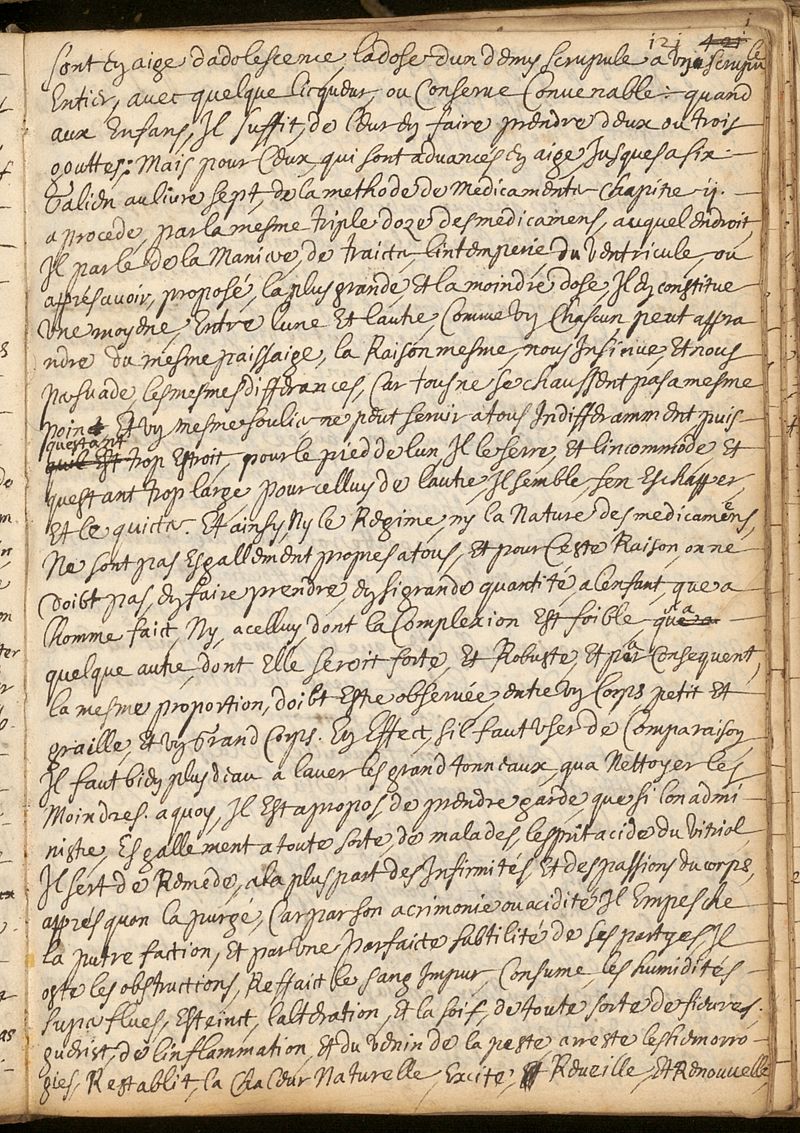 121 421
sont en aige dadolescence, la dose dun demy scrupule a un scrupule
Entier, avec quelque licqueur, ou Conserve Convenable: quand
aux Enfans, Il suffit, de leur en faire prendre deux ou trois
gouttes: Mais pour Ceux, qui sont advancés en aige Jusques a six
Galien au livre sept, de la methode de Medicamenter Chapitre ij.
a procedé, par la mesme triple doze des medicamens, auquel endroit,
Il parle de la Maniere, de traicter lintemperie du Ventricule, ou
appres avoir, proposé, la plus grande, Et la moindre dose, Il en constitue
Une moyene, Entre lune Et lautre, Comme un Chascun peut appra
ndre du mesme paissaige, la Raison mesme, nous Insinue, Et nous
persuade, les mesmes differances, Car tous ne se chaussent pas a mesme
point Et un mesme soulier ne peut servir a tous Indifferamment puis
questant
quil Est trop Estroit, pour le pied de lun Il le serre, et lincommode Et
questant trop large pour celluy de lautre, Il semble, sen Eschapper,
Et le quicter. Et ainsy, Ny le Regime, ny la Nature des medicamens,
Ne sont pas Esgallement propres a tous, Et pour Ceste Raison, on ne
doibt pas, en faire prendre, en si grande quantité, a lenfant, que a
lhomme faict, Ny, a celluy, dont la Complexion Est foible qua
quelque autre, dont Elle seroit forte, Et Robuste, Et par Consequent,
la mesme proportion, doibt Estre observée, entre un Corps petit Et
graille, et un Grand Corps. En Effect, sil faut User de Comparaison
Il faut bien plus deau a laver les grand tonneaux, qua Nettoyer les
Moindres. a quoy, Il Est apropos de prendre garde, que si lon admi
nistre, Esgallement a toute sorte, de malades, lesprit acide du Vitriol
Il sert de Remede, a la plus part des Infirmités Et des passions du corps,
appres quon la purgé, Car par son acrimonie ou acidité Il Empesche
la putrefaction, Et par Une Parfaicte subtilité de ses partyes Il
oste les obstructions, Reffaict le sang Impur, Consume, les humidités
superflues, Esteinct, lalteration, et la soif, de toute sorte de fieures,
guerist, de linflammation, et du Venin de la peste arreste les hemorro
gies, Restablit, la Chaleur Naturelle, Excite, Et Reveille, Et Renouvelle